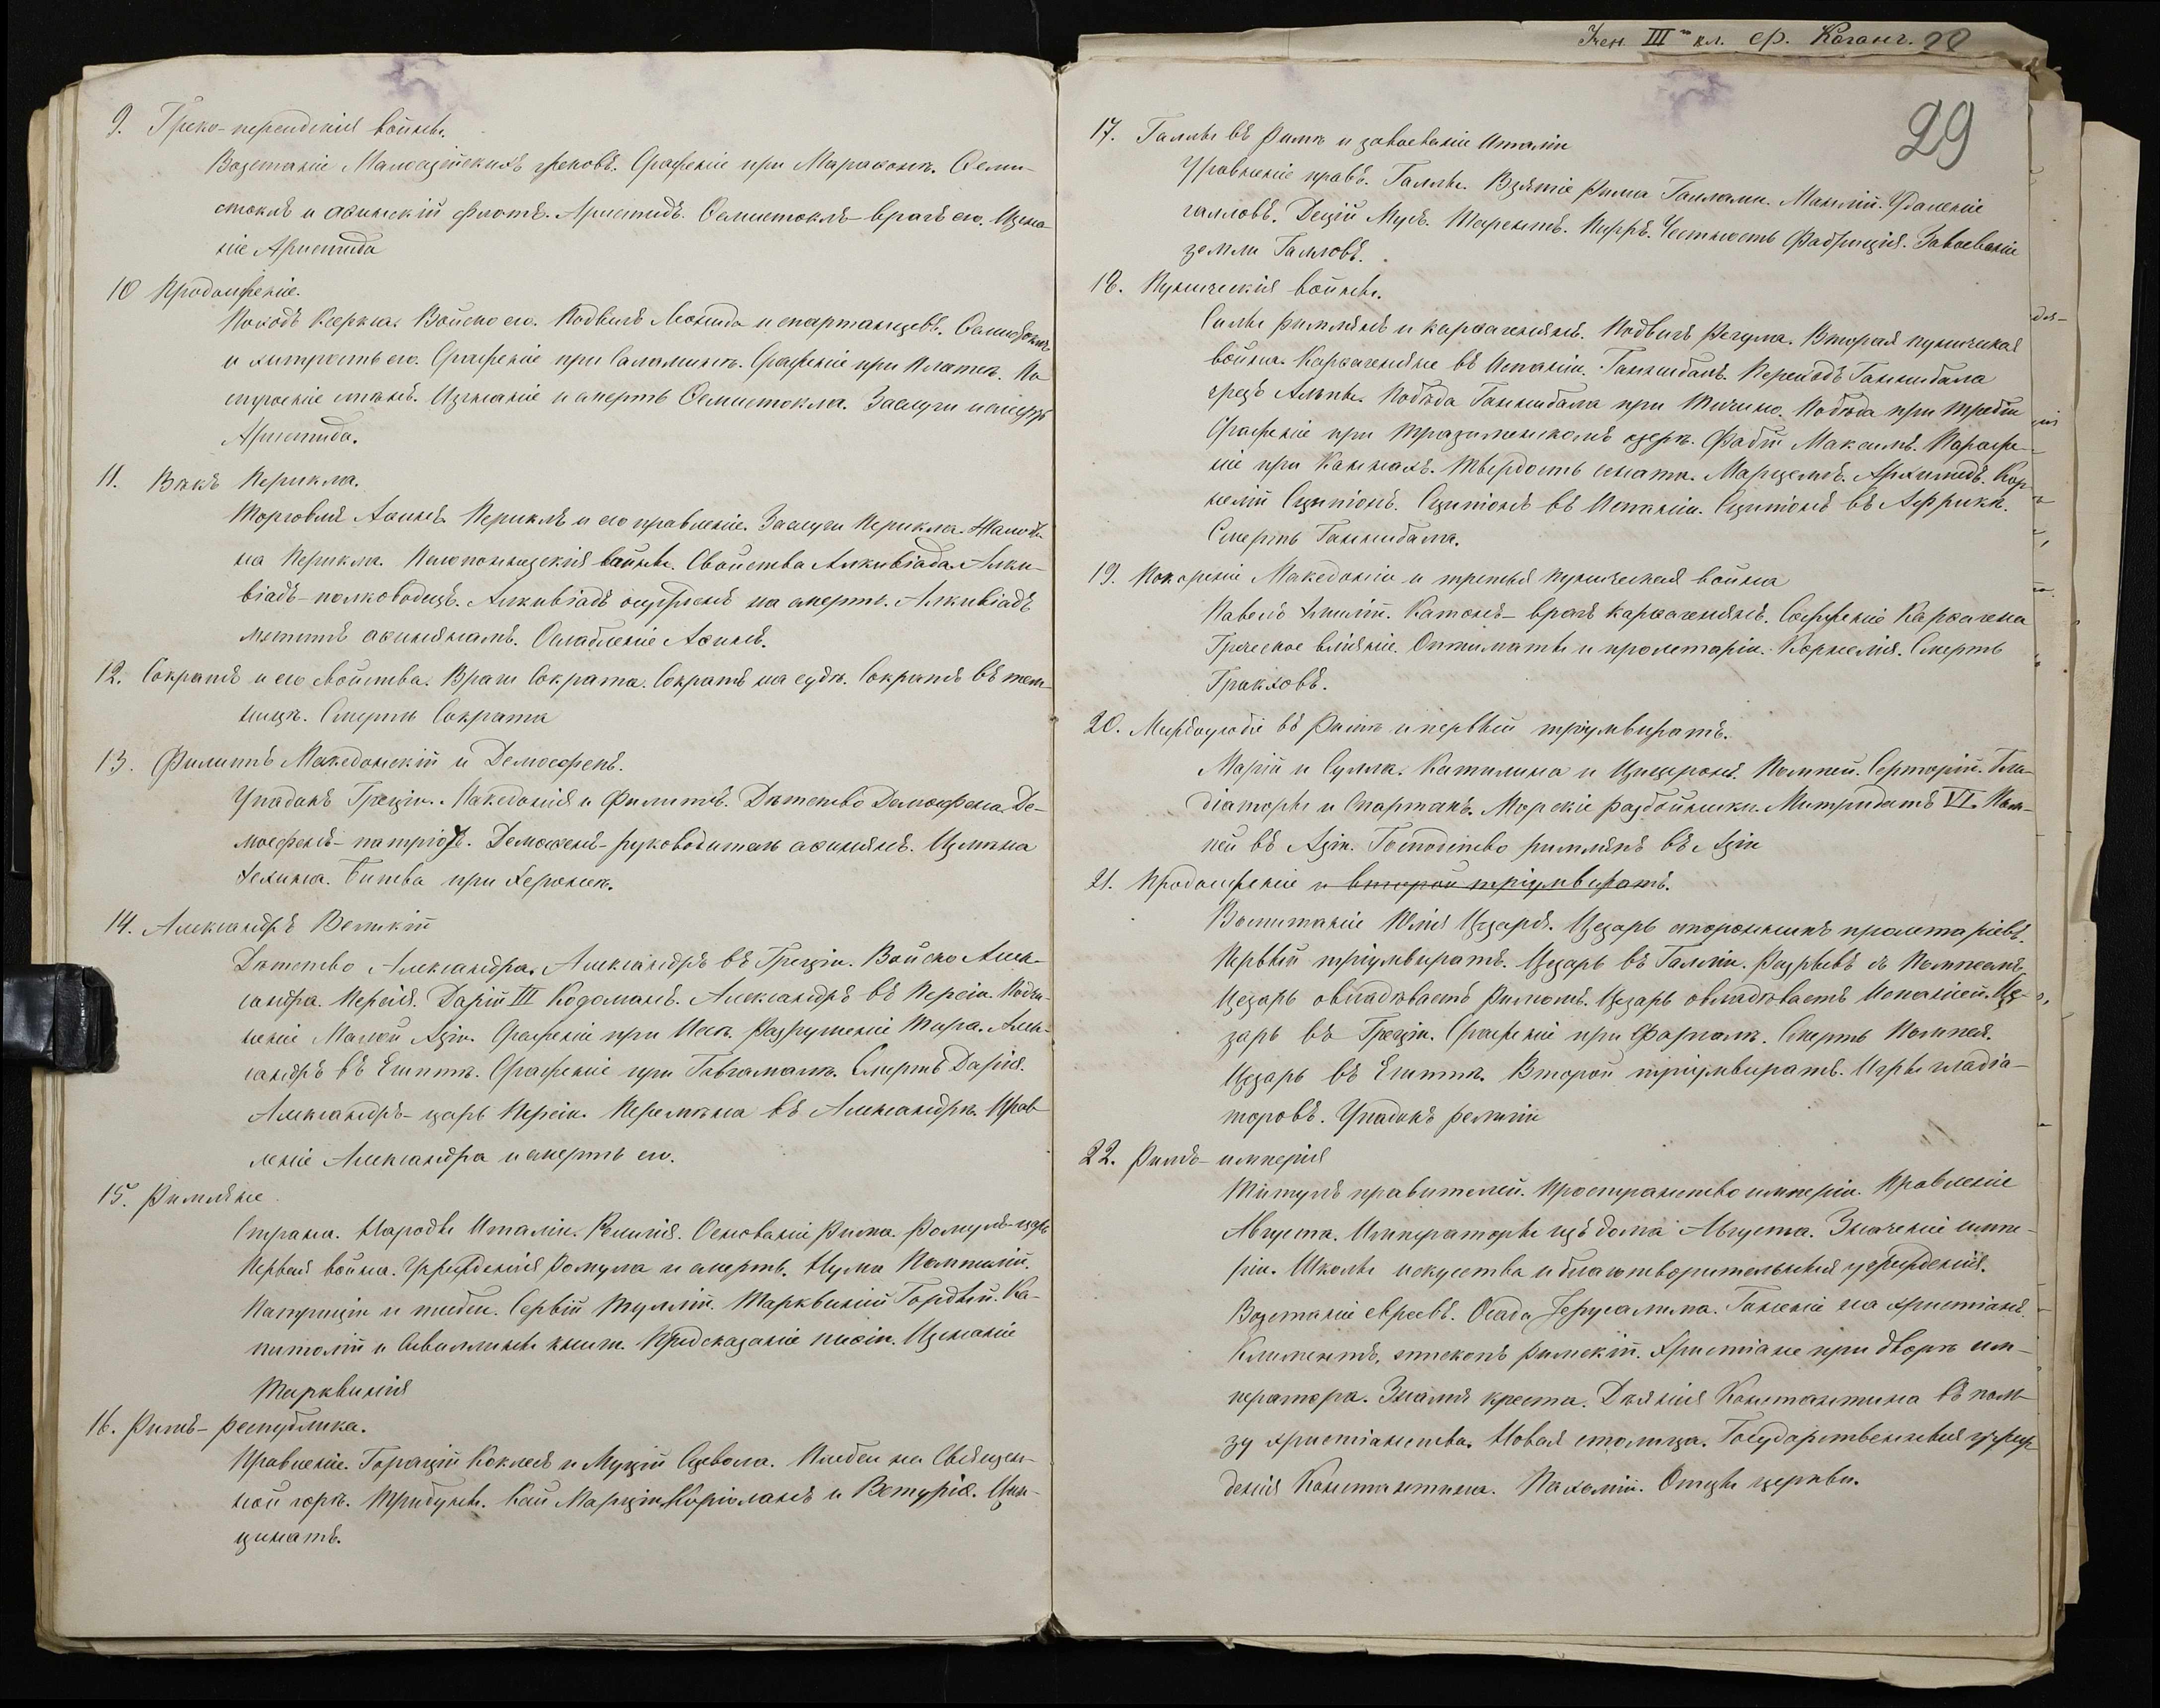 9. Греко-персидскія войны.
Возстаніе Малоазійскихъ грековъ. Сраженіе при Мараѳонѣ. Ѳеми-
стоклъ и аѳинскій флотъ. Аристидъ. Ѳемистоклъ - врагъ его. Изгна-
ніе Аристида
10 Продолженіе.
Походъ Ксеркса. Войско его. Подвигъ Леонида и спартанцевъ. Ѳемистоклъ
и хитрость его. Сраженіе при Саламинѣ. Сраженіе при Платеѣ. По-
строеніе стѣнъ. Изгнаніе и смерть Ѳемистокла. Заслуги и смерть
Аристида.
11. Вѣкъ Перикла.
Торговля Аѳинъ. Периклъ и его правленіе. Заслуги Перикла. Жалобы
на Перикла. Пелопоннезскія войны. Свойства Алкивіада. Алки-
віадъ - полководецъ. Алкивіадъ осужденъ на смерть. Алкивіадъ
мститъ аѳинянамъ. Ослабленіе Аѳинъ.
12. Сократъ и его свойства. Враги Сократа. Сократъ на судѣ. Сократъ въ тем-
ницѣ. Смерть Сократа
13. Филиппъ Македонскій и Демосѳенъ.
Упадокъ Греціи. Македонія и Филиппъ. Дѣтство Демосѳена. Де-
мосѳенъ - патріотъ. Демосѳенъ - руководитель аѳинянъ. Измѣна
Эсхина. Битва при Херонеѣ.
14. Александръ Великій
Дѣтство Александра. Александръ въ Греціи. Войско Алек-
сандра. Персія. Дарій III Кодоманъ. Александръ въ Персіи. Подчи-
неніе Малой Азіи. Сраженіе при Иссѣ. Разрушеніе Тира. Алек-
сандръ въ Египтѣ. Сраженіе при Гавгамалѣ. Смерть Дарія.
Александръ - царь Персіи. Перемѣна въ Александрѣ. Прав-
леніе Александра и смерть его.
15. Римляне
Страна. Народы Италіи. Религія. Основаніе Рима. Ромулъ - царь
Первая война. Учрежденія Ромула и смерть. Нума Помпилій.
Патриціи и плебеи. Сервій Туллій. Тарквиній Гордый. Ка-
питолій и Сивиллины книги. Предсказаніе пиѳіи. Изгнаніе
Тарквинія
16. Римъ - республика.
Правленіе. Горацій Коклесъ и Муцій Сцевола. Плебеи на Священ-
ной горѣ. Трибуны. Кай Марцій Коріоланъ и Ветурія. Цин-
цинатъ.
III кл. ср.
29
17. Галлы въ Римѣ и завоеваніе Италіи
Уравненіе правъ. Галлы. Взятіе Рима Галлами. Манлій. Удаленіе
галловъ. Децій Мусъ. Тарентъ. Пирръ. Честность Фабриція. Завоеваніе
земли Галловъ.
18. Пуническія войны.
Силы римлянъ и карѳагенянъ. Подвигъ Регула. Вторая пуническая
война. Карѳагеняне въ Испаніи. Ганнибалъ. Переходъ Ганнибала
чрезъ Альпы. Побѣда Ганнибала при Тичино. Побѣда при Требіи
Сраженіе при Тразименскомъ озерѣ. Фабій Максимъ. Пораже-
ніе при Каннахъ. Твердость сената. Марцеллъ. Архимедъ. Кор-
нелій Сципіонъ. Сципіонъ въ Испаніи. Сципіонъ въ Африкѣ.
Смерть Ганнибала.
19. Покореніе Македоніи и третья пуническая война
Павелъ Эмилій. Катонъ - врагъ карѳагенянъ. Сожженіе Карѳагена
Греческое вліяніе. Оптиматы и пролетаріи. Корнелія. Смерть
Гракховъ.
20. Междоусобія въ Римѣ и первый тріумвиратъ.
Марій и Сулла. Катилина и Цицеронъ. Помпей. Серторій. Гла-
діаторы и Спартакъ. Морскіе разбойники. Митридатъ VI. Пом-
пей въ Азіи. Господство римлянъ въ Азіи
21. Продолженіе и второй тріумвиратъ.
Воспитаніе Юлія Цезаря. Цезарь сторонникъ пролетаріевъ.
Первый тріумвиратъ. Цезарь въ Галліи. Разрывъ съ Помпеемъ.
Цезарь овладѣваетъ Римомъ. Цезарь овладѣваетъ Испаніей. Це-
зарь въ Греціи. Сраженіе при Фарсалѣ. Смерть Помпея.
Цезарь въ Египтѣ. Второй тріумвиратъ. Игры гладіа-
торовъ. Упадокъ религіи
22. Римъ - имперія
Титулъ правителей. Пространство имперіи. Правленіе
Августа. Императоры изъ дома Августа. Значеніе импе-
ріи. Школы искусства и благотворительныя учрежденія.
Возстаніе евреевъ. Осада Іерусалима. Гоненіе на христіанъ.
Климентъ, епископъ римскій. Христіане при дворѣ им-
ператора. Знамя креста. Дѣянія Константина въ поль-
зу христіанства. Новая столица. Государственныя учреж-
денія Константина. Пахомій. Отцы церкви.